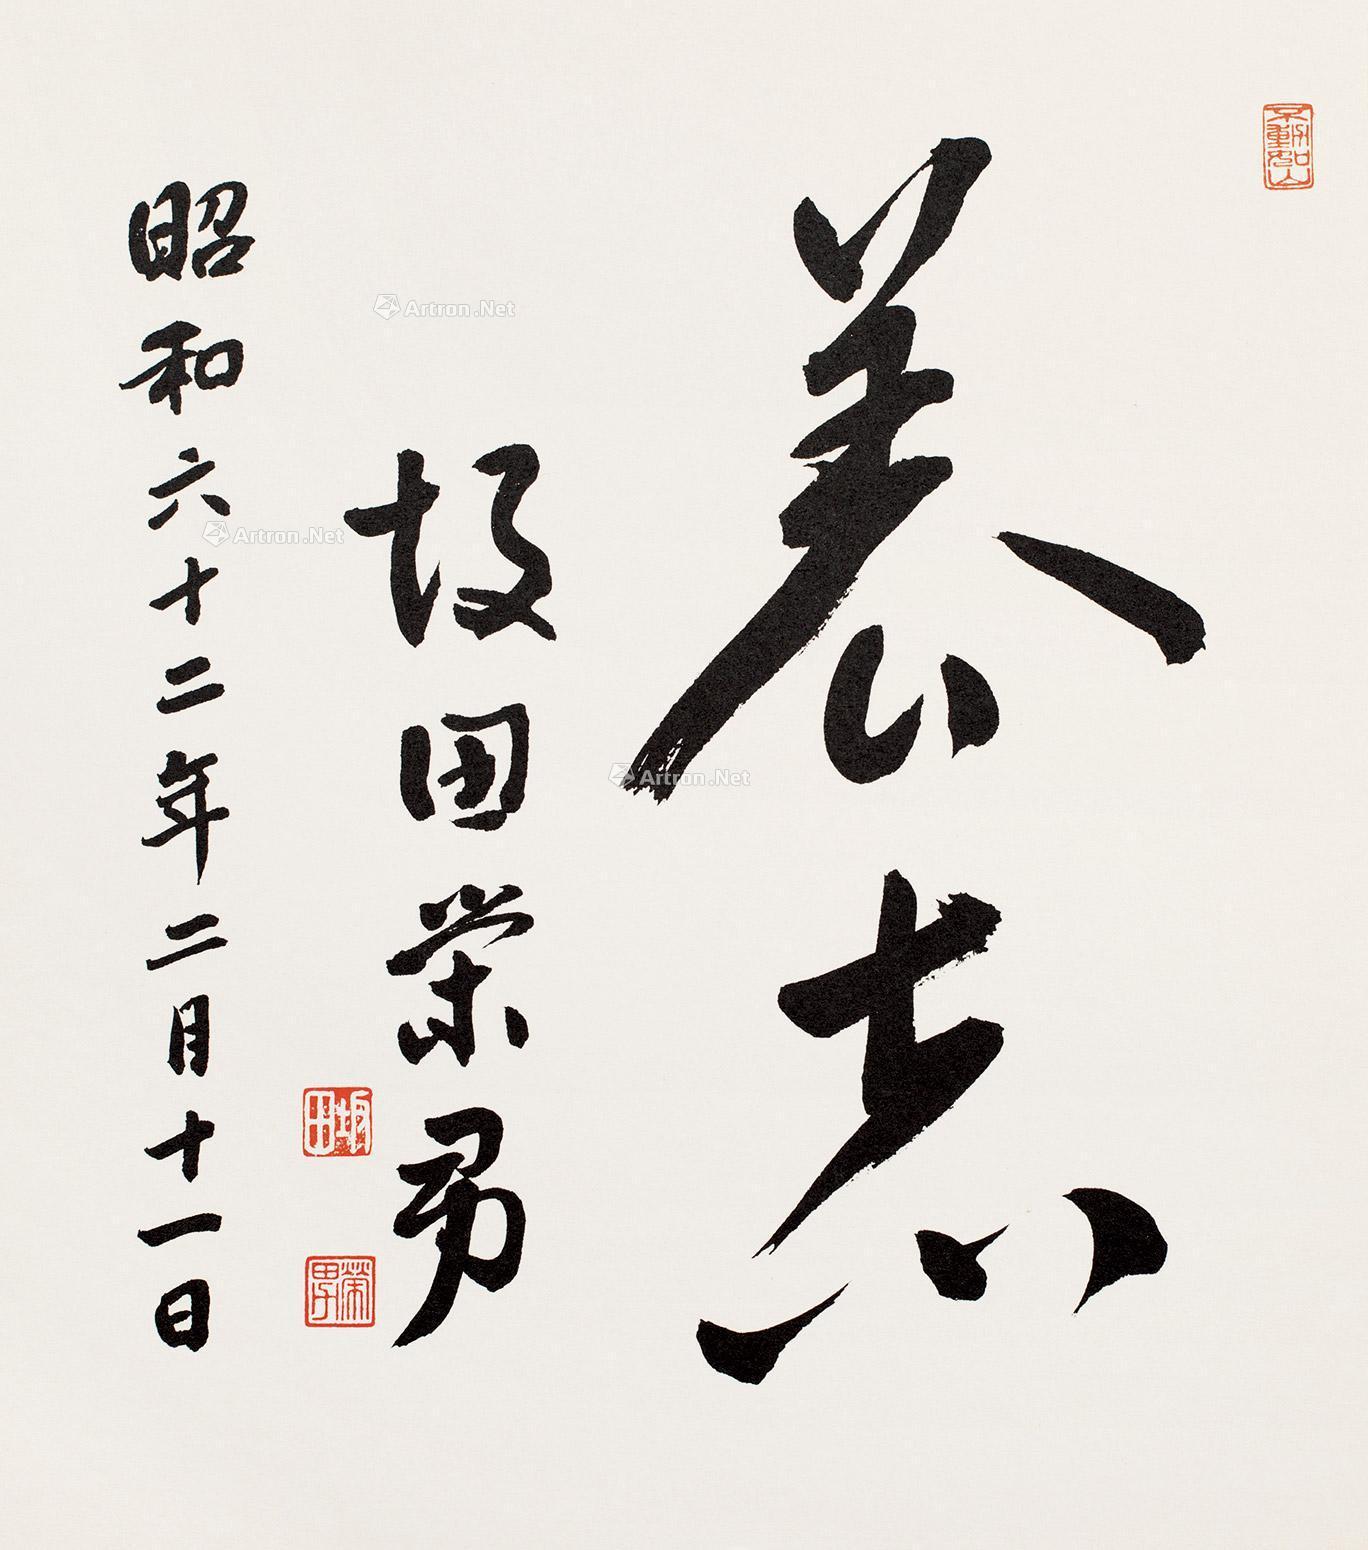 養志
坂田栄男
昭和六十二年二月十一日
不動如山
坂田
栄男
Artron.Net
Artron.Net
Artron.Net